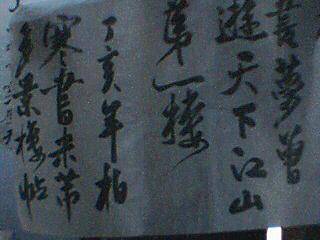 夢曾
遊天下江山
第一樓
丁亥年柏
寒書米芾
多景樓帖